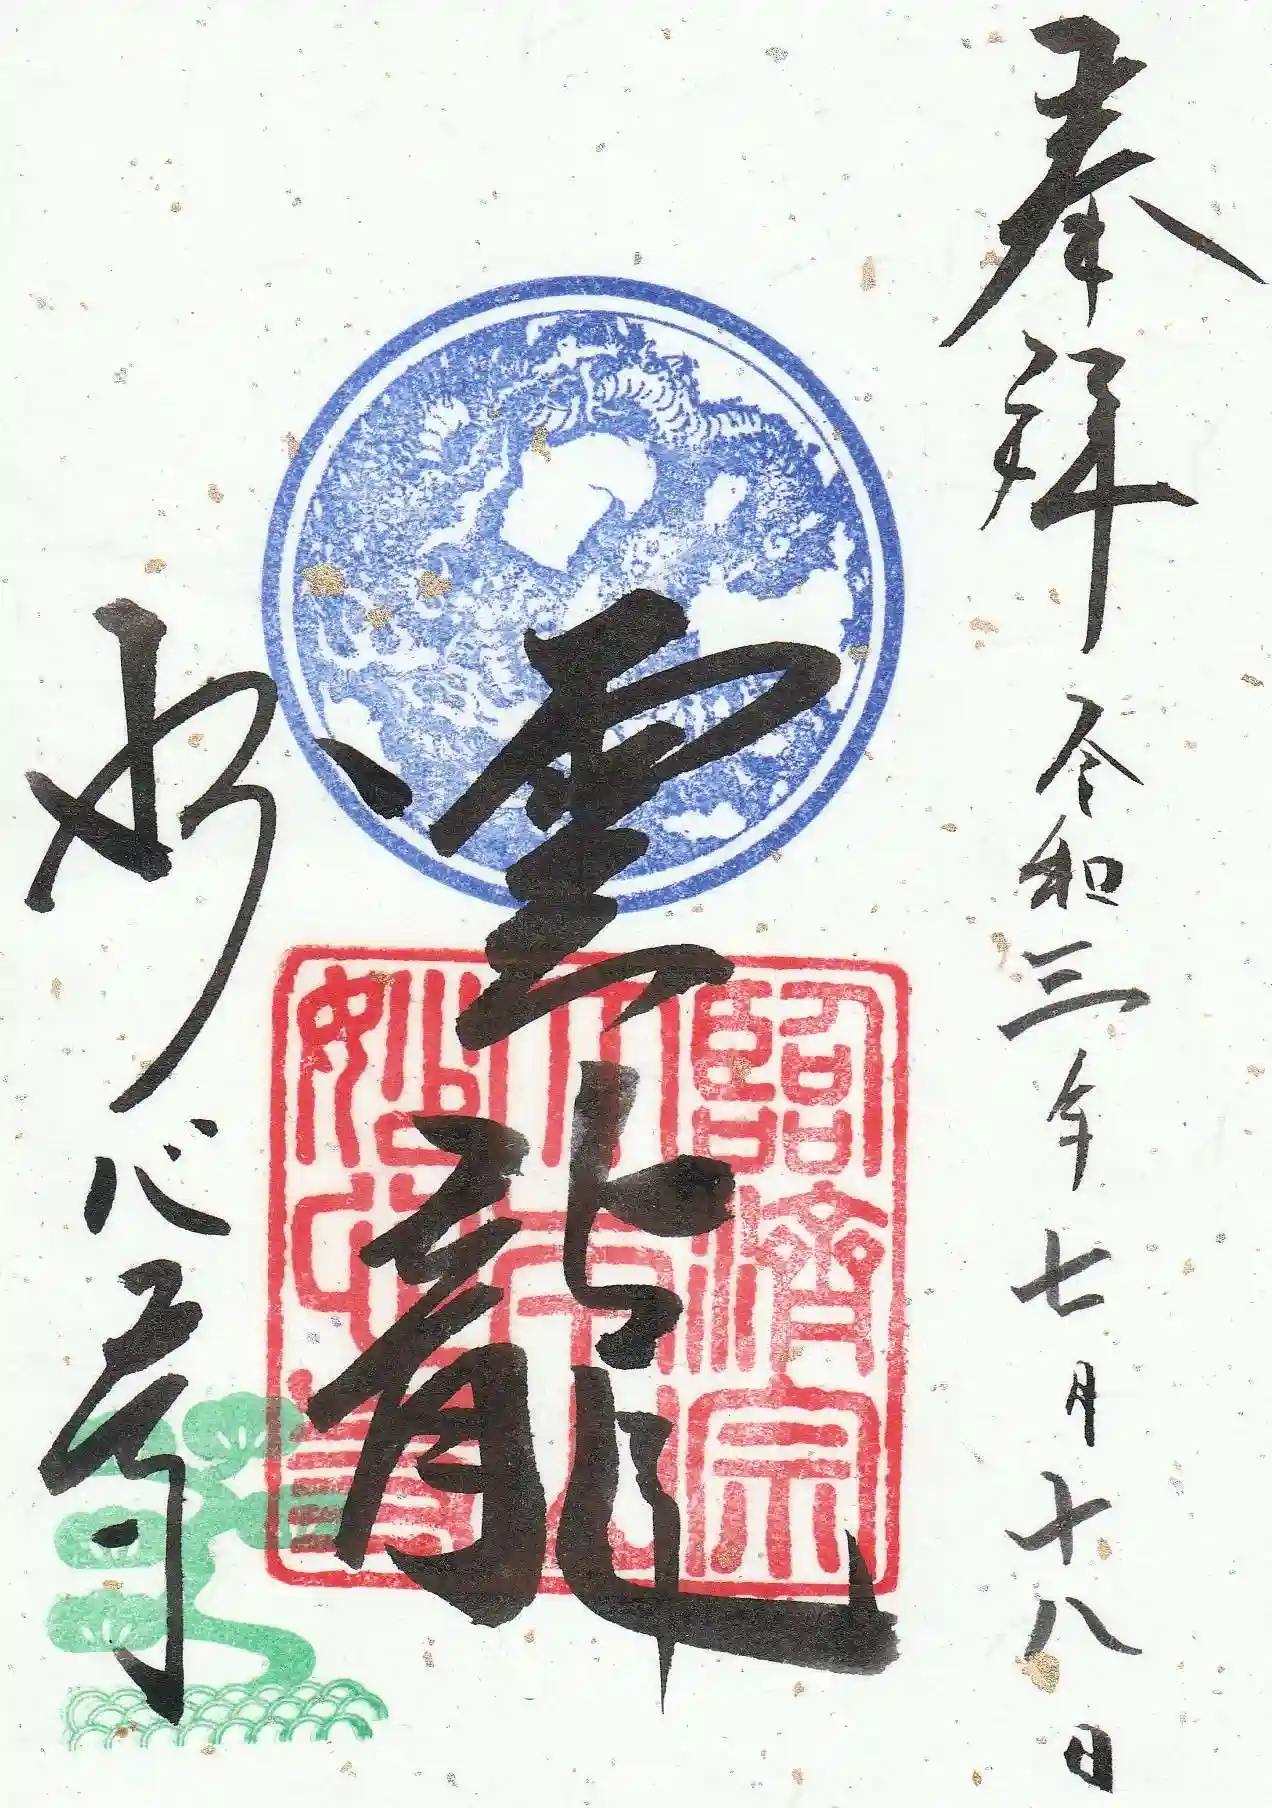 奉拝 令和三年七月十八日
雲龍
妙心寺
臨濟宗
大本山
妙心寺